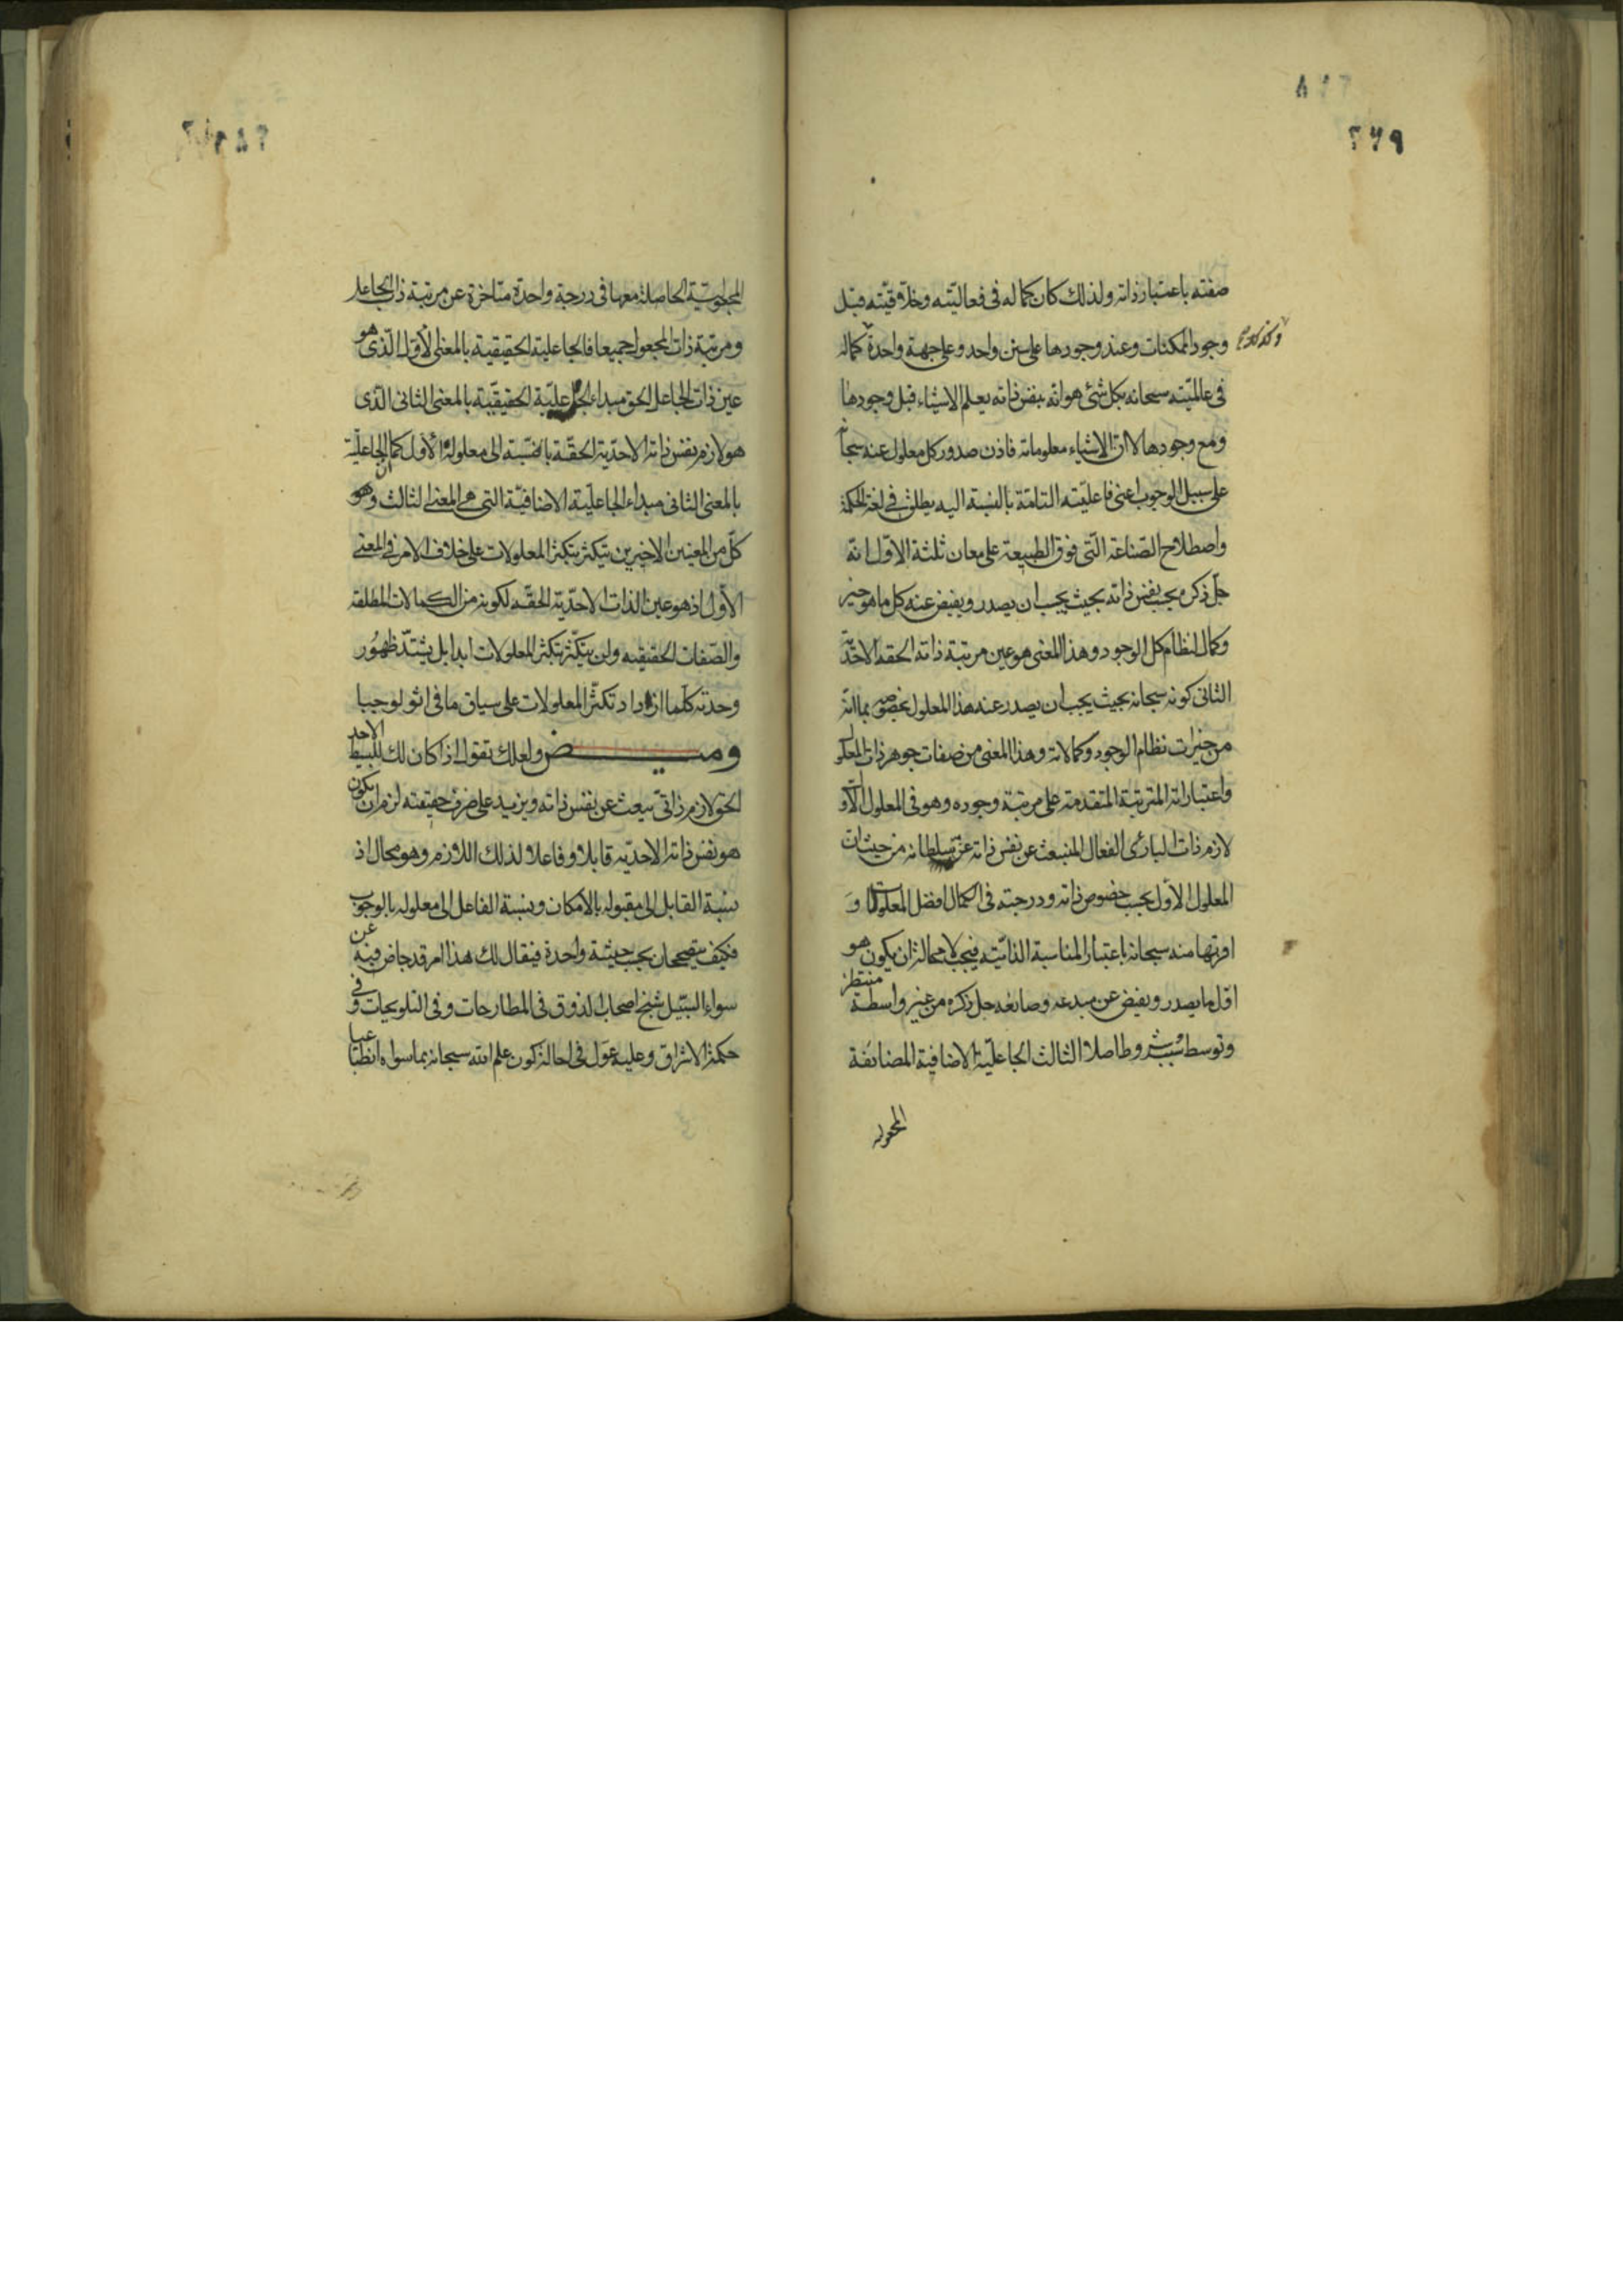 ٢٦٩
صفته باعتبار ذاته ولذلك كان كماله فى فعاليته وخلاقيته قبل
وجود الممكنات وعند وجودها على سنن واحد وعلى جهة واحدة كماله
وكذلك
فى عالميته سبحانه بكل شئ هو انه بنفس ذاته يعلم الاشياء قبل وجودها
ومع وجودها لا ان الاشياء معلوماته فاذن صدور كل معلول عنه سبحا
على سبيل الوجوب اعنى فاعليته التامة بالنسبة اليه يطلق فى لغة الحكمة
واصطلاح الصناعة التى فوق الطبيعة على معان ثلثة الاول انه
جل ذكره بحسب نفس ذاته بحيث يجب ان يصدر ويفيض عنه كل ما هو خير
وكمال لنظام كل الوجود وهذا المعنى هو عين مرتبة ذاته الحقة الاحدّ
الثانى كونه سبحانه بحيث يجب ان يصدر عنه هذا المعلول بخصوصه بما انه
من خيرات نظام الوجود وكمالاته وهذا المعنى من صفات جوهر ذات المعلو
واعتباراته المترتبة المتقدمة على مرتبة وجوده وهو فى المعلول الاو
لازم ذات البارئ الفعال المنبعث عن نفس ذاته عز سلطانه من حيث ان
المعلول الاول بحسب خصوص ذاته ودرجته فى الكمال افضل المعلولات و
اقربها منه سبحانه باعتبار المناسبة الذاتية فيجب لا محالة ان يكون هو
اول ما يصدر ويفيض عن مبدعه وصانعه جل ذكره من غير واسطة منتظر
وتوسط شرط اصلا الثالث الجاعلية الاضافية المضائفة
المجعولية
المجعولية الحاصلة معها فى درجة واحدة متاخرة عن مرتبة ذات الجاعل
ومرتبة ذات المجعول جميعا فالجاعلية الحقيقية بالمعنى الاول الذى هو
عين ذات الجاعل الحق مبداء الجاعلية الحقيقية بالمعنى الثانى الذى
هو لازم نفس ذاته الاحدية الحقة بالنسبة الى معلوله الاول كما ان الجاعلية
بالمعنى الثانى مبداء الجاعلية الاضافية التى هى المعنى الثالث وهو
كل من المعنيين الاخيرين يتكثر بتكثر المعلولات على خلاف الامر فى المعنى
الاول اذ هو عين الذات الاحدية الحقة لكونه من الكمالات المطلقة
والصفات الحقيقيه ولن يتكثر بتكثر المعلولات ابدا بل يشتد ظهور
وحدته كلما ازداد تكثر المعلولات على سياق ما فى اثولوجيا
وميض ولعلك تقول اذا كان لك للبسيط الاحد
الحق لازم ذاتى ينبعث عن نفس ذاته ويزيد على صرف حقيقته لزم ان يكون
هو نفس ذاته الاحديه قابلا وفاعلا لذلك اللازم وهو محال اذ
نسبة القابل الى مقبوله بالامكان ونسبة الفاعل الى معلوله بالوجوب
فكيف يصححان بحسب حيثية واحدة فيقال لك هذا امر قد جاض فيه عن
سواء السبيل شيخ اصحاب الذوق فى المطارحات وفى التلويحات وفى
حكمة الاشراق وعليه عول فى احالة كون علم الله سبحانه بما سواه انطباعيا